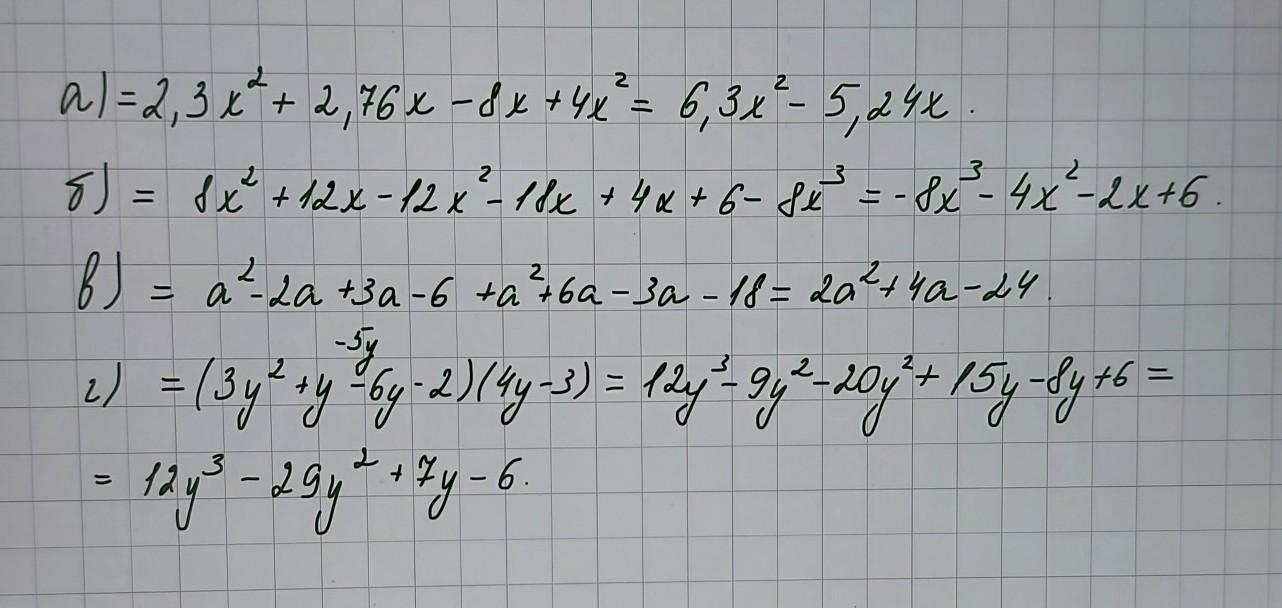 а) = 2,3x² + 2,76x - 8x + 4x² = 6,3x² - 5,24x.
б) = 8x² + 12x - 12x² - 18x + 4x + 6 - 8x³ = -8x³ - 4x² - 2x + 6.
в) = a² - 2a + 3a - 6 + a² + 6a - 3a - 18 = 2a² + 4a - 24.
-5y
г) = (3y² + y - 6y - 2)(4y - 3) = 12y³ - 9y² - 20y² + 15y - 8y + 6 =
= 12y³ - 29y² + 7y - 6.